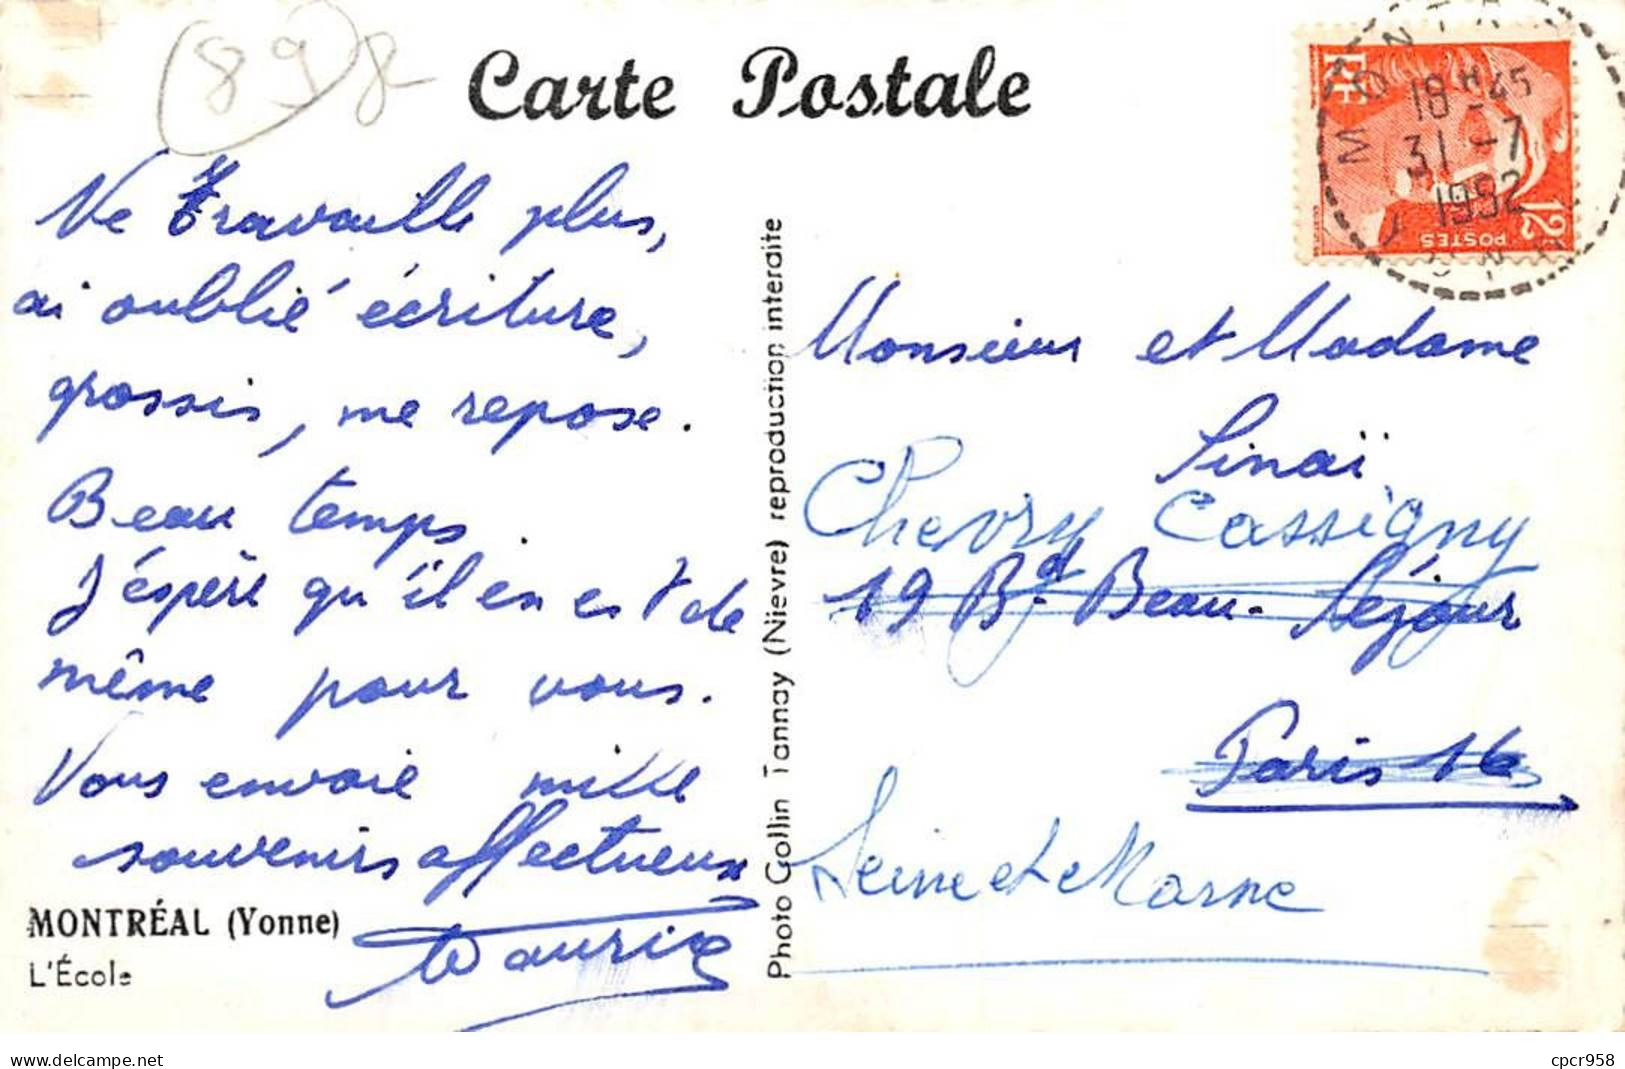 898
Carte Postale
RF
12F
POSTES
MONTRÉAL
18H45
31-7
1952
YONNE
Ne travaille plus,
ai oublié écriture,
grossis, me repose.
Beau temps.
J'espère qu'il en est de
même pour vous.
Vous envoie mille
souvenirs affectueux
Maurice
MONTRÉAL (Yonne)
L'École
Photo Gollin Tannay (Nièvre) reproduction interdite
Monsieur et Madame
Sinaï
Chevry Cossigny
19 Bd. Beau-Séjour
Paris 16
Seine et Marne
www.delcampe.net
cpcr958